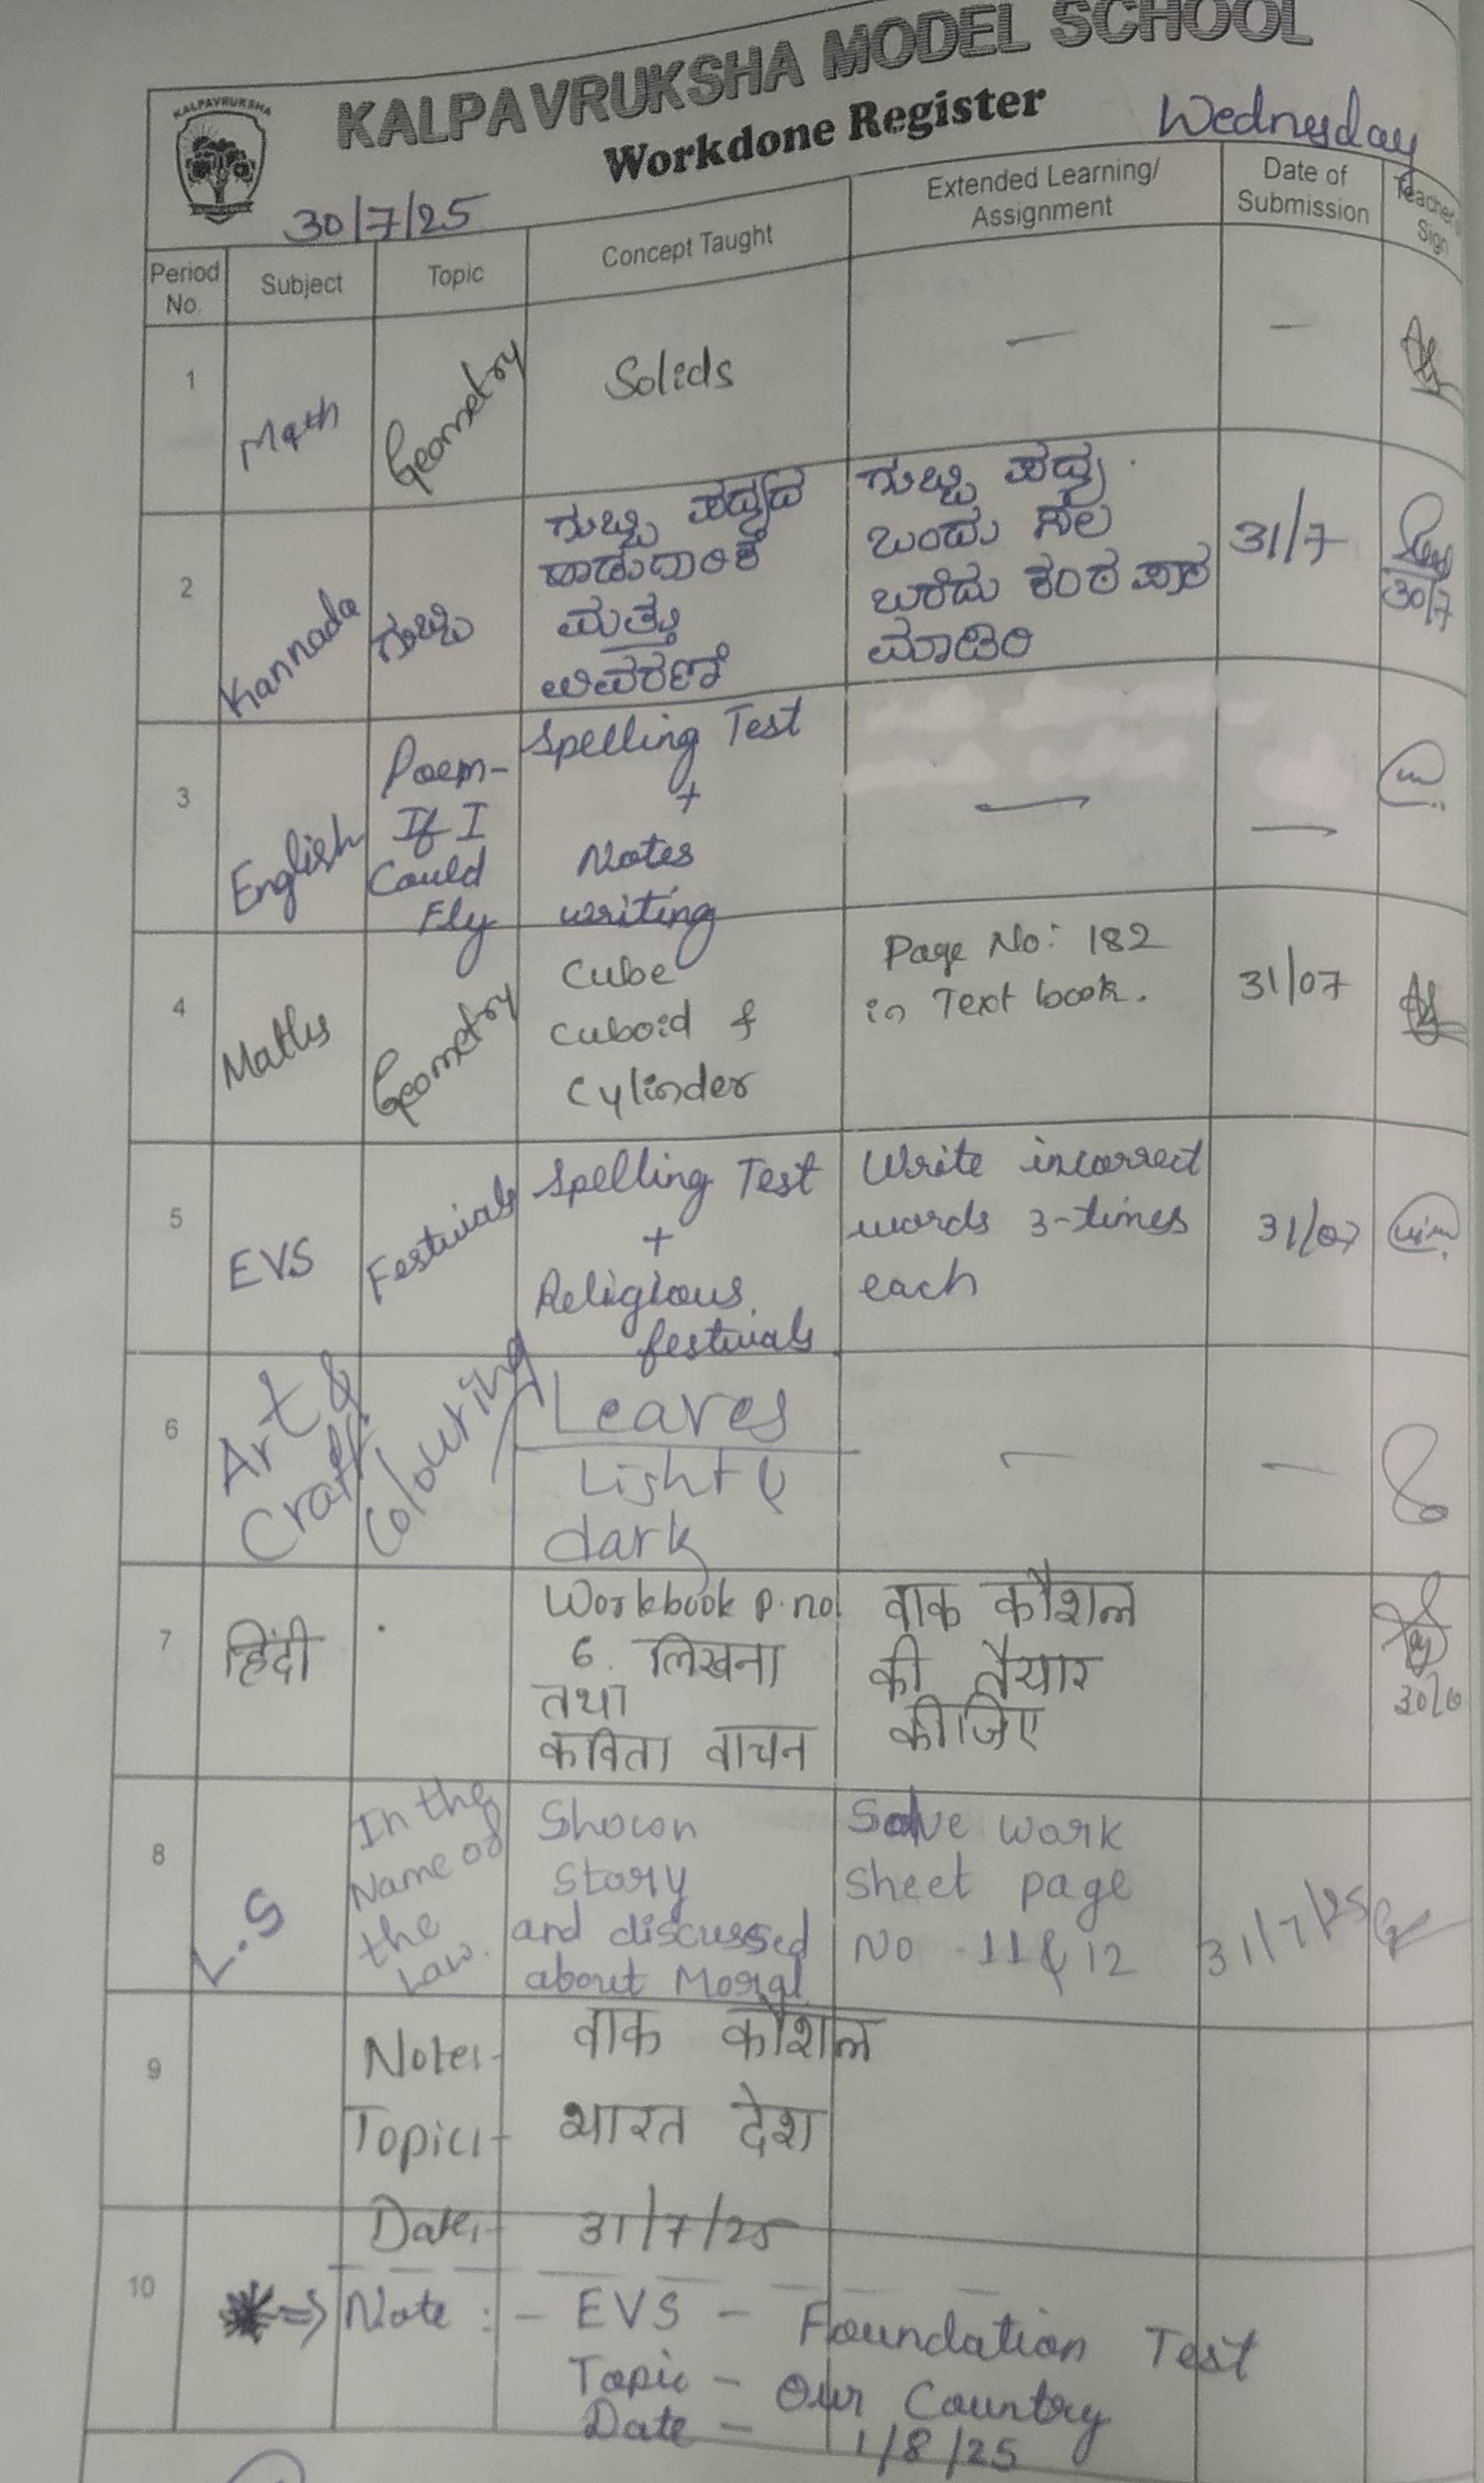 KALPAVRUKSHA
KALPAVRUKSHA MODEL SCHOOL
Workdone Register
Wednesday
30/7/25
Period No.
Subject
Topic
Concept Taught
Extended Learning/
Assignment
Date of
Submission
Teacher
Sign
1
Math
Geometry
Solids
—
—
2
Kannada
ಗುಬ್ಬಿ
ಗುಬ್ಬಿ ಪದ್ಯದ
ಹಾಡುಗಾರಿಕೆ
ಮತ್ತು
ವಿವರಣೆ
ಗುಬ್ಬಿ ಪದ್ಯ
ಒಂದು ಸಲ
ಬರೆದು ಕಂಠ ಪಾಠ
ಮಾಡಿರಿ
31/7
30/7
3
English
Poem-
If I
Could
Fly
Spelling Test
+
Notes
writing
—
—
4
Maths
Geometry
Cube
Cuboid &
Cylinder
Page No: 182
in Text book.
31/07
5
EVS
Festivals
Spelling Test
+
Religious
festivals.
Write incorrect
words 3-times
each
31/07
6
Art &
Craft
Colouring
Leaves
Light &
dark
—
—
7
हिंदी
Workbook p.no
6. लिखना
तथा
कविता वाचन
वाक कौशल
की तैयार
कीजिए
8
L.S
In the
Name of
the
Law.
Shown
Story
and discussed
about Moral
Solve work
sheet page
No - 11 & 12
31/7/25
9
Note:-
वाक कौशल
Topic:-
भारत देश
Date:-
31/7/25
10
⇒ Note :- EVS - Foundation Test
Topic - Our Country
Date - 1/8/25